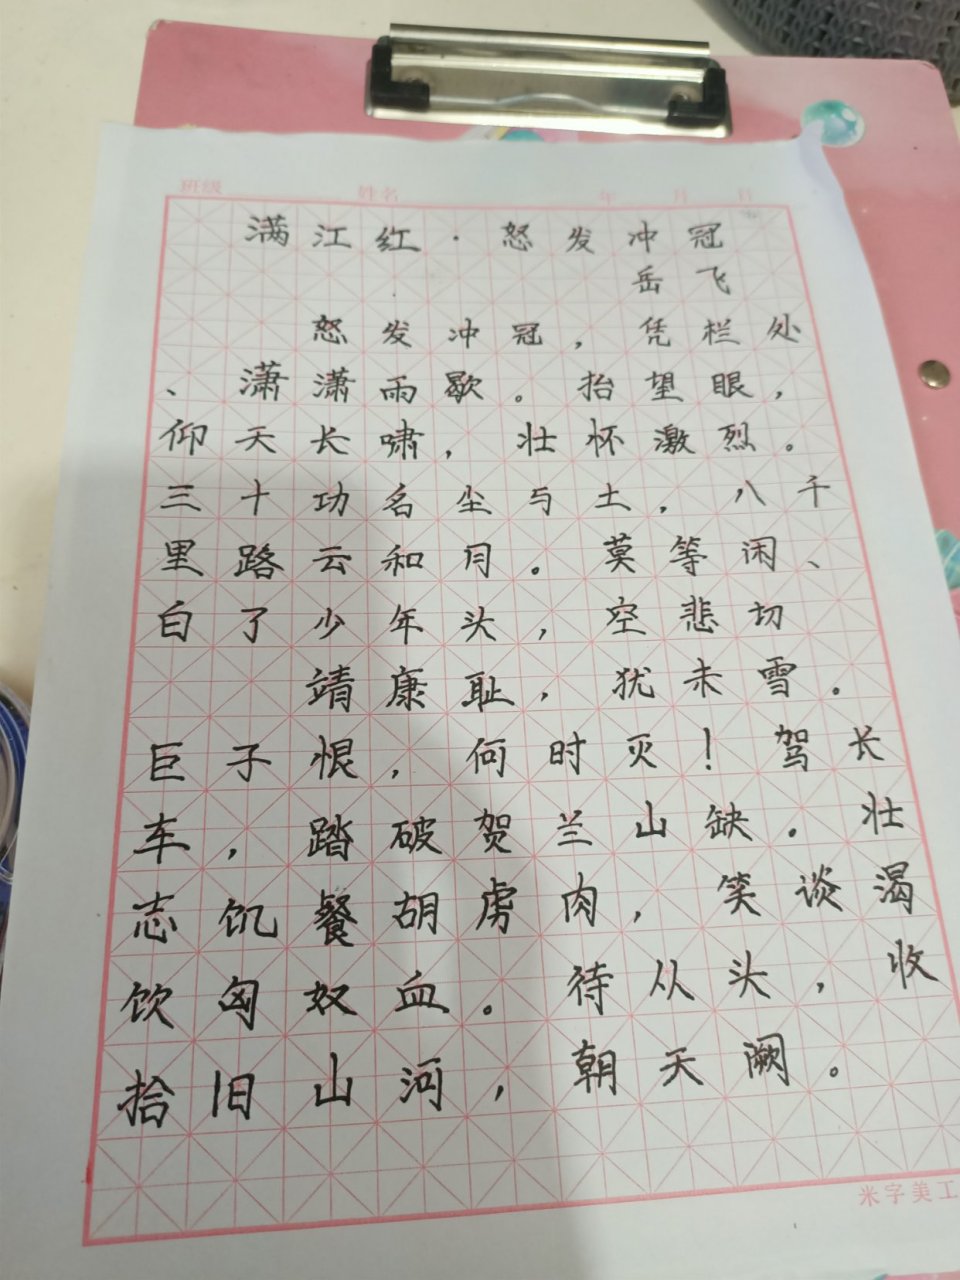 班级 姓名 年 月 日
满江红·怒发冲冠
岳飞
怒发冲冠，凭栏处
、潇潇雨歇。抬望眼，
仰天长啸，壮怀激烈。
三十功名尘与土，八千
里路云和月。莫等闲、
白了少年头，空悲切
靖康耻，犹未雪。
巨子恨，何时灭！驾长
车，踏破贺兰山缺。壮
志饥餐胡虏肉，笑谈渴
饮匈奴血。待从头，收
拾旧山河，朝天阙。
米字美工